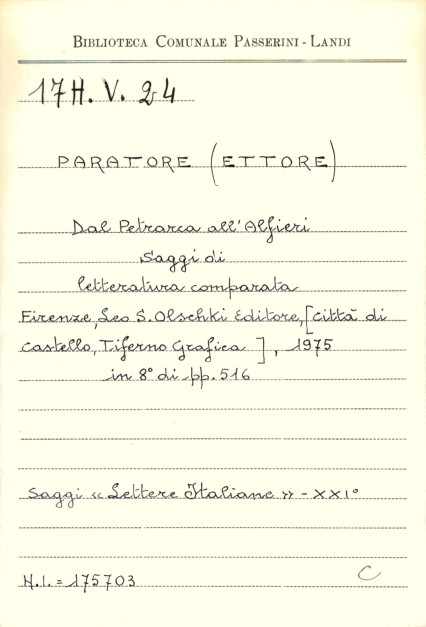 BIBLIOTECA COMUNALE PASSERINI - LANDI
17H. V. 24
PARATORE (ETTORE)
Dal Petrarca all'Alfieri
Saggi di
letteratura comparata
Firenze, Leo S. Olschki Editore, [Città di
Castello, Tiferno Grafica ], 1975
in 8° di pp. 516
Saggi « Lettere Italiane » - XXI°
N.I. = 175703
C